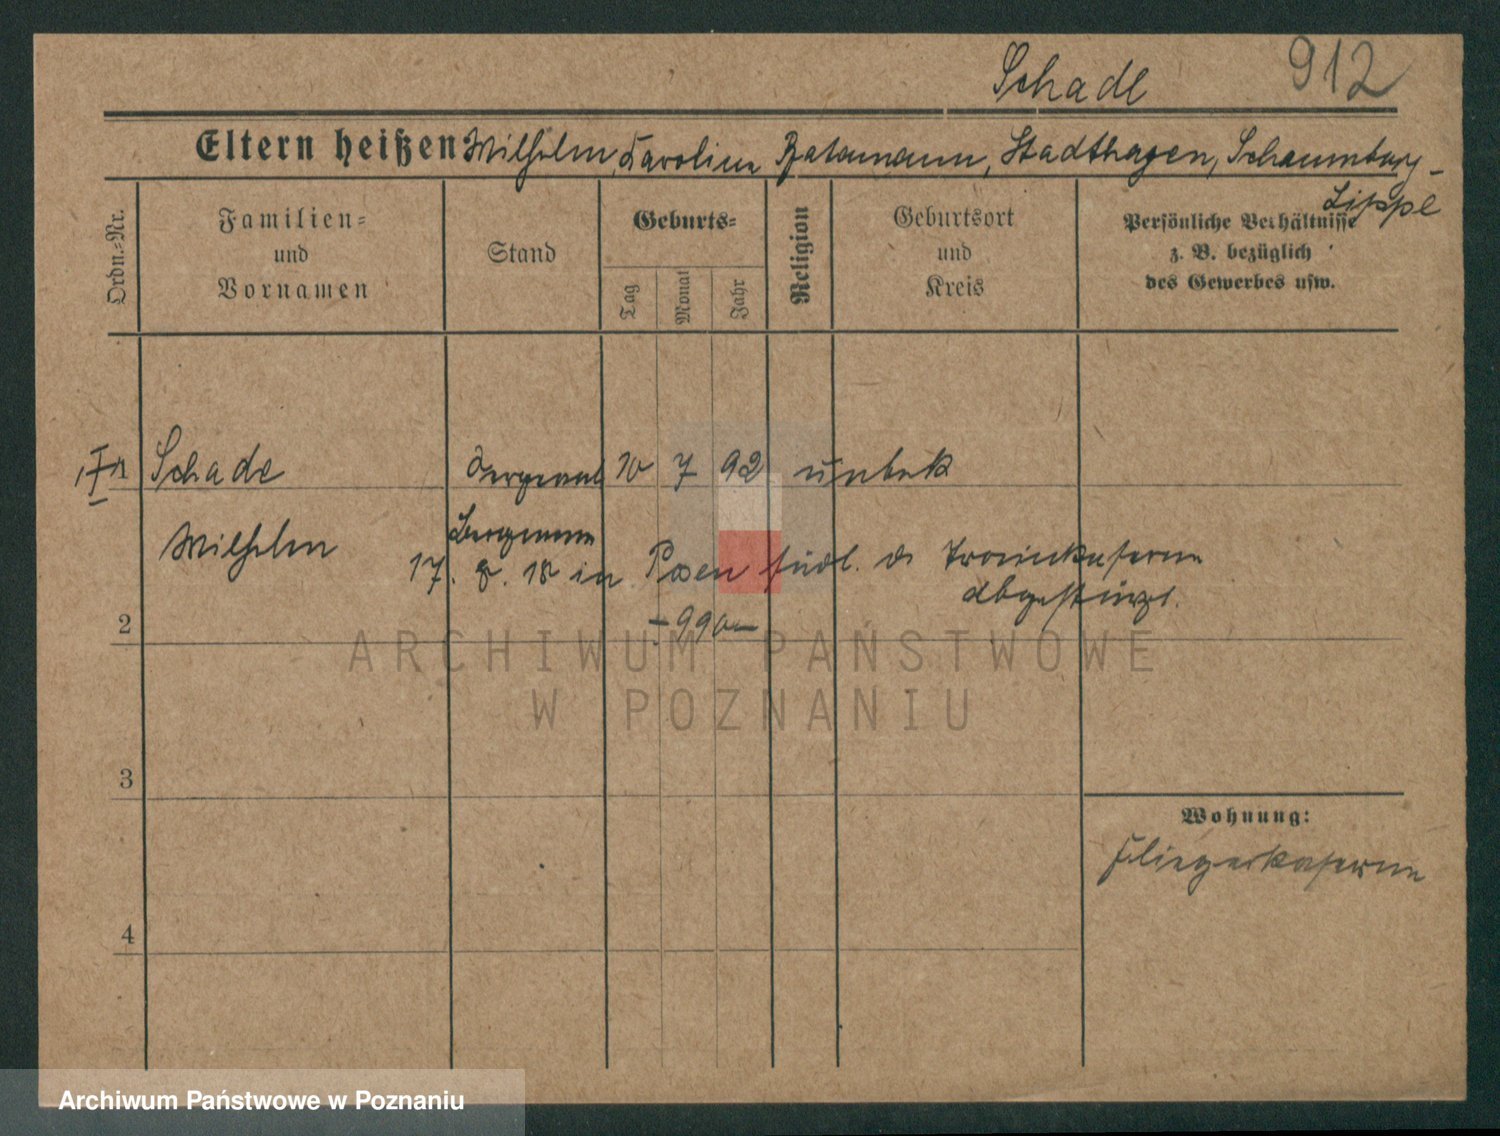 Schade
912
Eltern heißen Wilhelm, Karoline Batemann, Stadthagen, Schaumburg-
Lippe
Ordn.-Nr.
Familien-
und
Vornamen
Stand
Geburts-
Tag
Monat
Jahr
Religion
Geburtsort
und
Kreis
Persönliche Verhältnisse
z. B. bezüglich
des Gewerbes usw.
1 Schade Sergeant 10 7 92 unbek
Wilhelm Bergmann
17. 8. 18 in Posen südl. d. Trainkaserne
abgestürzt.
2
3
4
Wohnung:
Fliegerkaserne
ARCHIWUM PAŃSTWOWE
W POZNANIU
Archiwum Państwowe w Poznaniu